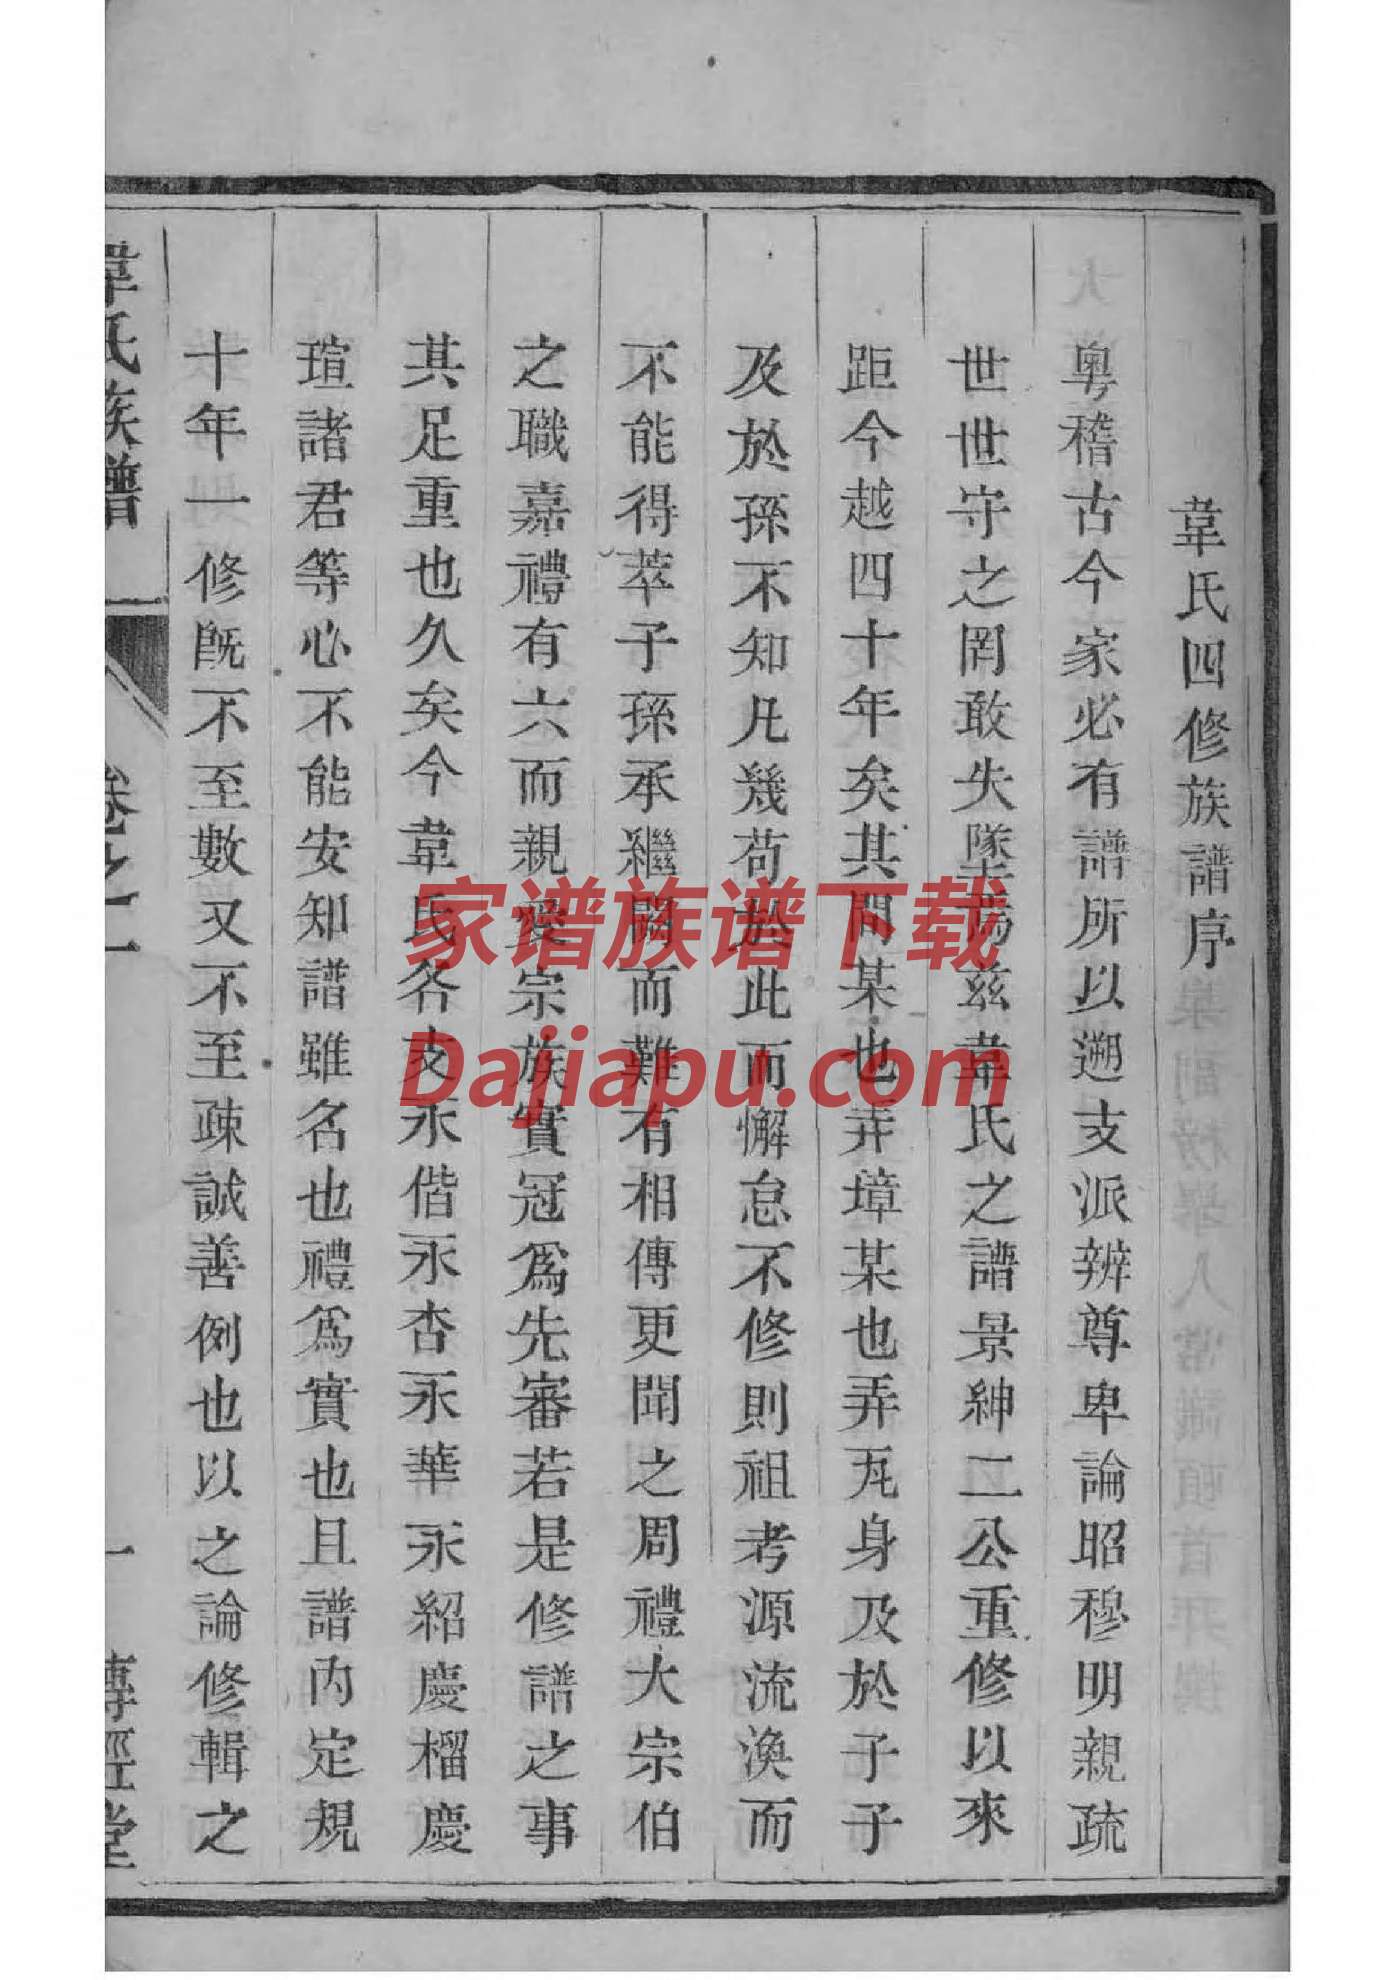 韋氏四修族譜序
粵稽古今家必有譜所以遡支派辨尊卑論昭穆明親疏
世世守之罔敢失墜焉茲韋氏之譜景紳二公重修以來
距今越四十年矣其間某也弄璋某也弄瓦身及於子子
及於孫不知凡幾苟於此而懈怠不修則祖考源流渙而
不能得萃子孫承繼闕而難有相傳更聞之周禮大宗伯
之職嘉禮有六而親愛宗族實冠爲先審若是修譜之事
其足重也久矣今韋氏各支永偕永杏永華永紹慶榴慶
瑄諸君等心不能安知譜雖名也禮爲實也且譜內定規
十年一修旣不至數又不至疎誠善例也以之論修輯之
韋氏族譜 卷之一 一 傳經堂
家谱族谱下载
Dajiapu.com